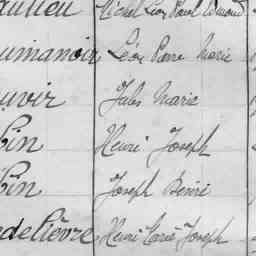 aulieu Michel Léon Paul Edmond
umanoir Léon Pierre Marie
uvir Jules Marie
bin Henri Joseph
bin Joseph Désiré
de Lièvre Henri Marie Joseph